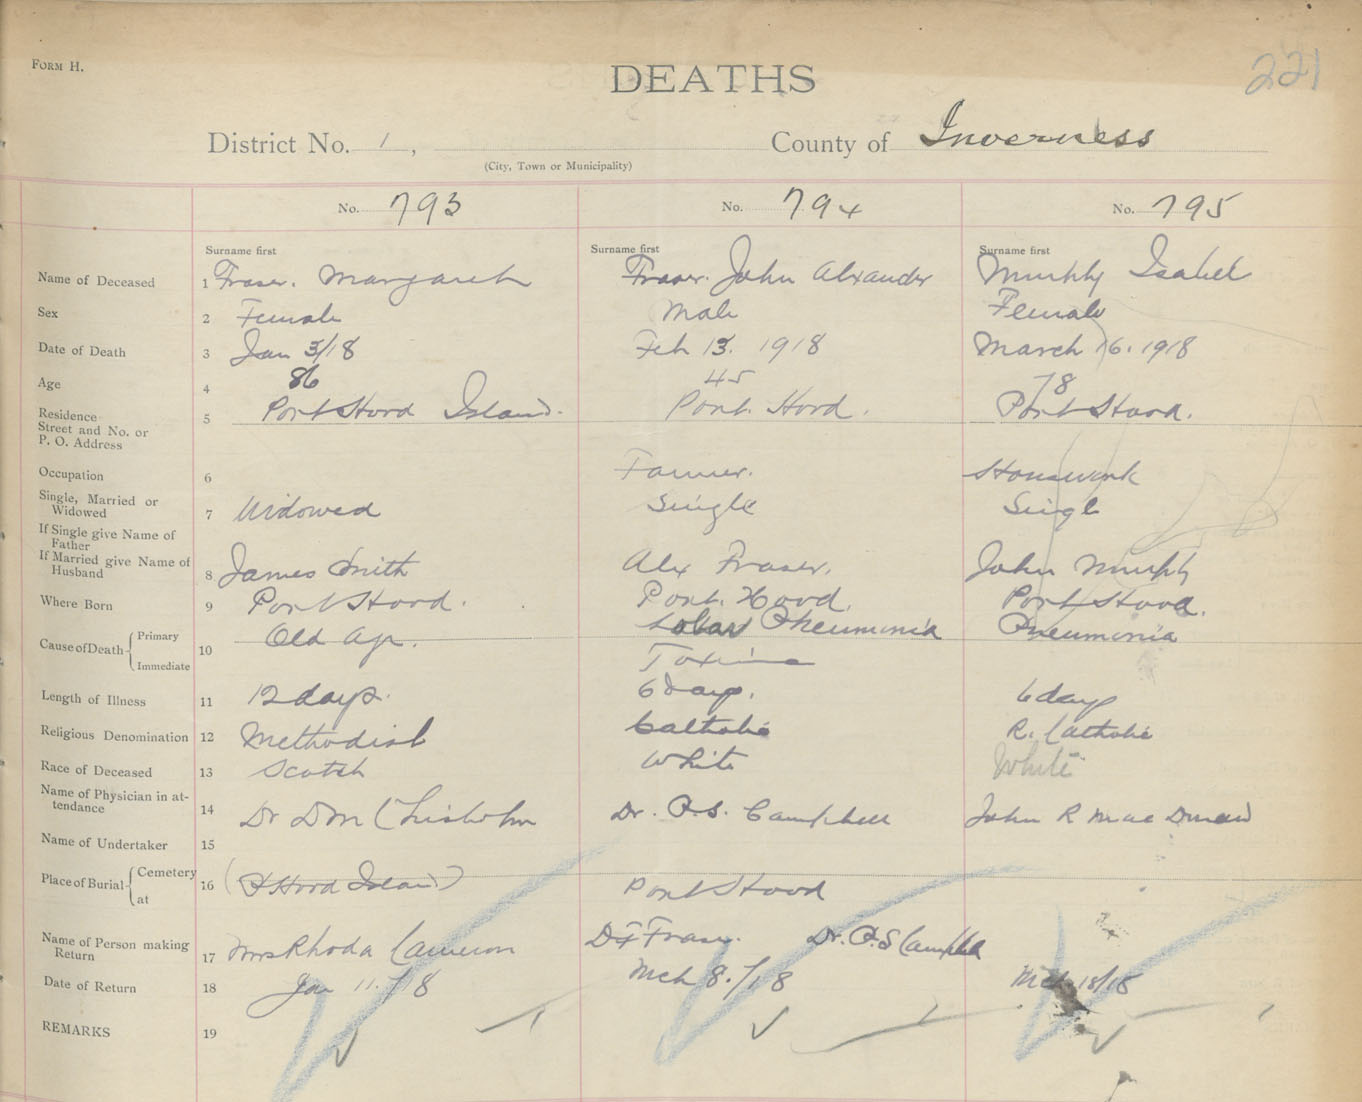 FORM H.
221
DEATHS
District No. 1, County of Inverness
(City, Town or Municipality)
No. 793 No. 794 No. 795
Surname first Surname first Surname first
Name of Deceased 1 Fraser. Margaret Fraser. John Alexander Murphy Isabel
Sex 2 Female Male Female
Date of Death 3 Jan 3/18 Feb 13. 1918 March 16. 1918
Age 4 86 45 78
Residence Street and No. or P. O. Address 5 Port Hood Island. Port. Hood. Port Hood.
Occupation 6 Farmer. Housework
Single, Married or Widowed 7 Widowed Single Single
If Single give Name of Father
If Married give Name of Husband 8 James Smith Alex Fraser. John Murphy
Where Born 9 Port Hood. Port. Hood. Port Hood.
Cause of Death { Primary Immediate 10 Old Age. Lobar Pneumonia Pneumonia
Toxemia
Length of Illness 11 12 days. 6 days. 6 days
Religious Denomination 12 Methodist Catholic R. Catholic
Race of Deceased 13 Scotch White White
Name of Physician in attendance 14 Dr D M Chisholm Dr. P.S. Campbell John R Mac
Name of Undertaker 15
Place of Burial { Cemetery at 16 (Pt Hood Island) Port Hood
Name of Person making Return 17 Mrs Rhoda Cameron Fraser. Dr. P.S Campbell
Date of Return 18 Jan 11/18 Mch 8./18 Mch 18/18
REMARKS 19